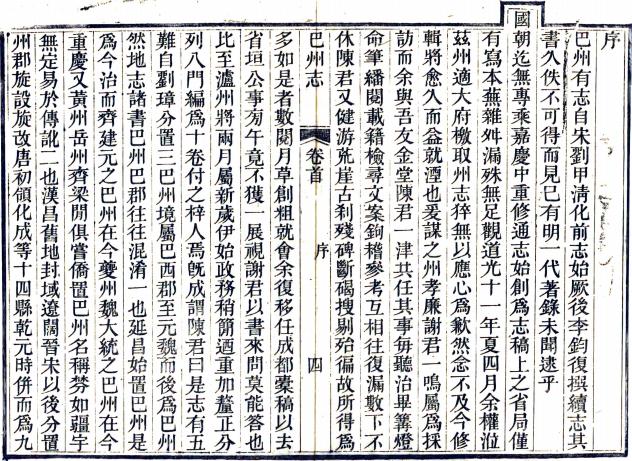 序
巴州有志自宋劉甲清化前志始厥後李鈞復撰續志其
書久佚不可得而見巳有明一代著錄未聞逮乎
國朝迄無專乘嘉慶中重修通志始創爲志稿上之省局僅
有寫本蕪雜舛漏殊無足觀道光十一年夏四月余權涖
茲州適大府檄取州志猝無以應心爲歉然念不及今修
輯將愈久而益就湮也爰謀之州孝廉謝君一鳴屬爲採
訪而余與吾友金堂陳君一津共任其事每聽治畢篝燈
命筆繙閱載籍檢尋文案鉤稽參考互相往復漏數下不
休陳君又健游荒崖古刹殘碑斷碣搜剔殆徧故所得爲
巴州志 卷首 序 四
多如是者數閱月草創粗就會余復移任成都橐稿以去
省垣公事旁午竟不獲一展視謝君以書來問莫能答也
比至瀘州將兩月屬新歲伊始政務稍簡迺重加釐正分
列八門編爲十卷付之梓人焉旣成謂陳君曰是志有五
難自劉璋分置三巴州境屬巴西郡至元魏而後爲巴州
然地志諸書巴州巴郡往往混淆一也延昌始置巴州是
爲今治而齊建元之巴州在今夔州魏大統之巴州在今
重慶又黃州岳州齊梁閒俱嘗僑置巴州名稱棼如疆宇
無定易於傳訛二也漢昌舊地封域遼闊晉宋以後分置
州郡旋設旋改唐初領化成等十四縣乾元時併而爲九